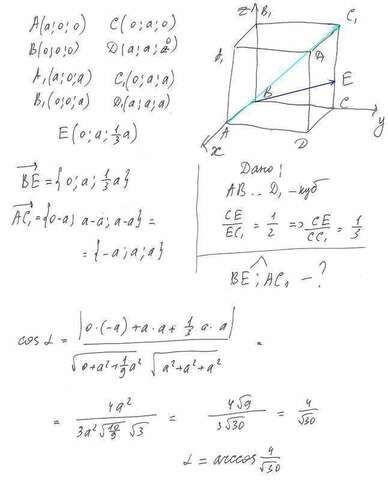 A(a;0;0) C(0;a;0)
B(0;0;0) D(a;a;0)
A₁(a;0;a) C₁(0;a;a)
B₁(0;0;a) D₁(a;a;a)
E(0;a;⅓a)
z B₁ C₁
A₁ Д₁
E
B C y
A D
x
BE = {0;a;⅓a}
AC₁ = {0-a; a-a; a-a} =
= {-a; a; a}
Дано:
AB..D₁ - куб
CE/EC₁ = 1/2 => CE/CC₁ = 1/3
BE; AC₁ - ?
cos α = |0·(-a)+a·a+⅓a·a| / √(0+a²+1/9a²) √(a²+a²+a²) =
= 4a² / 3a²√(10/9) √3 = 4√9 / 3√30 = 4/√30
α = arccos 4/√30